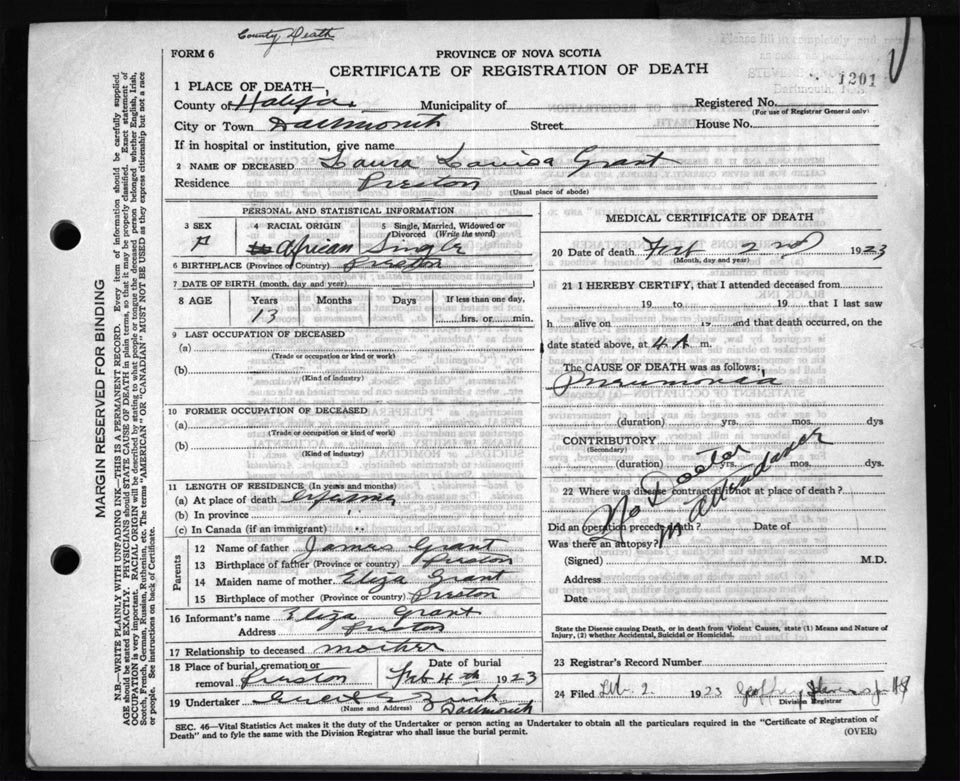 County Death
FORM 6
PROVINCE OF NOVA SCOTIA
CERTIFICATE OF REGISTRATION OF DEATH
1201
1 PLACE OF DEATH—
County of Halifax Municipality of Registered No.
(For use of Registrar General only)
City or Town Dartmouth Street House No.
If in hospital or institution, give name
2 NAME OF DECEASED Laura Louisa Grant
Residence Preston
(Usual place of abode)
PERSONAL AND STATISTICAL INFORMATION
3 SEX F
4 RACIAL ORIGIN African
5 Single, Married, Widowed or Divorced (Write the word) Single
6 BIRTHPLACE (Province or Country) Preston
7 DATE OF BIRTH (month, day and year)
8 AGE Years Months Days If less than one day,
13 hrs. or min.
9 LAST OCCUPATION OF DECEASED
(a)
(Trade or occupation or kind or work)
(b)
(Kind of industry)
10 FORMER OCCUPATION OF DECEASED
(a)
(Trade or occupation or kind of work)
(b)
(Kind of industry)
11 LENGTH OF RESIDENCE (In years and months)
(a) At place of death
(b) In province
(c) In Canada (if an immigrant)
Parents
12 Name of father James Grant
13 Birthplace of father (Province or country) Preston
14 Maiden name of mother Eliza Grant
15 Birthplace of mother (Province or country) Preston
16 Informant's name Eliza Grant
Address Preston
17 Relationship to deceased mother
18 Place of burial, cremation or removal Preston
Date of burial Feb 4th 1923
19 Undertaker
(Name and Address) Dartmouth
MEDICAL CERTIFICATE OF DEATH
20 Date of death Feb 2nd 1923
(Month, day and year)
21 I HEREBY CERTIFY, that I attended deceased from
19 to 19 that I last saw
h alive on 19 and that death occurred, on the
date stated above, at 4 A m.
The CAUSE OF DEATH was as follows:
Pneumonia
(duration) yrs. mos. dys
CONTRIBUTORY
(Secondary)
(duration) yrs. mos. dys.
22 Where was disease contracted if not at place of death?
No Doctor
in attendance
Did an operation precede death? Date of
Was there an autopsy?
(Signed) M.D.
Address
Date
State the Disease causing Death, or in death from Violent Causes, state (1) Means and Nature of Injury, (2) whether Accidental, Suicidal or Homicidal.
23 Registrar's Record Number
24 Filed Feb. 2 1923
Division Registrar
SEC. 46—Vital Statistics Act makes it the duty of the Undertaker or person acting as Undertaker to obtain all the particulars required in the "Certificate of Registration of
Death" and to fyle the same with the Division Registrar who shall issue the burial permit.
(OVER)
MARGIN RESERVED FOR BINDING
N.B.—WRITE PLAINLY WITH UNFADING INK—THIS IS A PERMANENT RECORD. Every item of information should be carefully supplied.
AGE should be stated EXACTLY. PHYSICIANS should STATE CAUSE OF DEATH in plain terms, so that it may be properly classified. Exact statement of
OCCUPATION is very important. RACIAL ORIGIN will be described by stating to what race or tongue the deceased person belonged whether English, Irish,
Scotch, French, German, Russian, Ruthenian, etc. The terms "AMERICAN" OR "CANADIAN" MUST NOT BE USED as they express citizenship but not a race
or people. See instructions on back of Certificate.